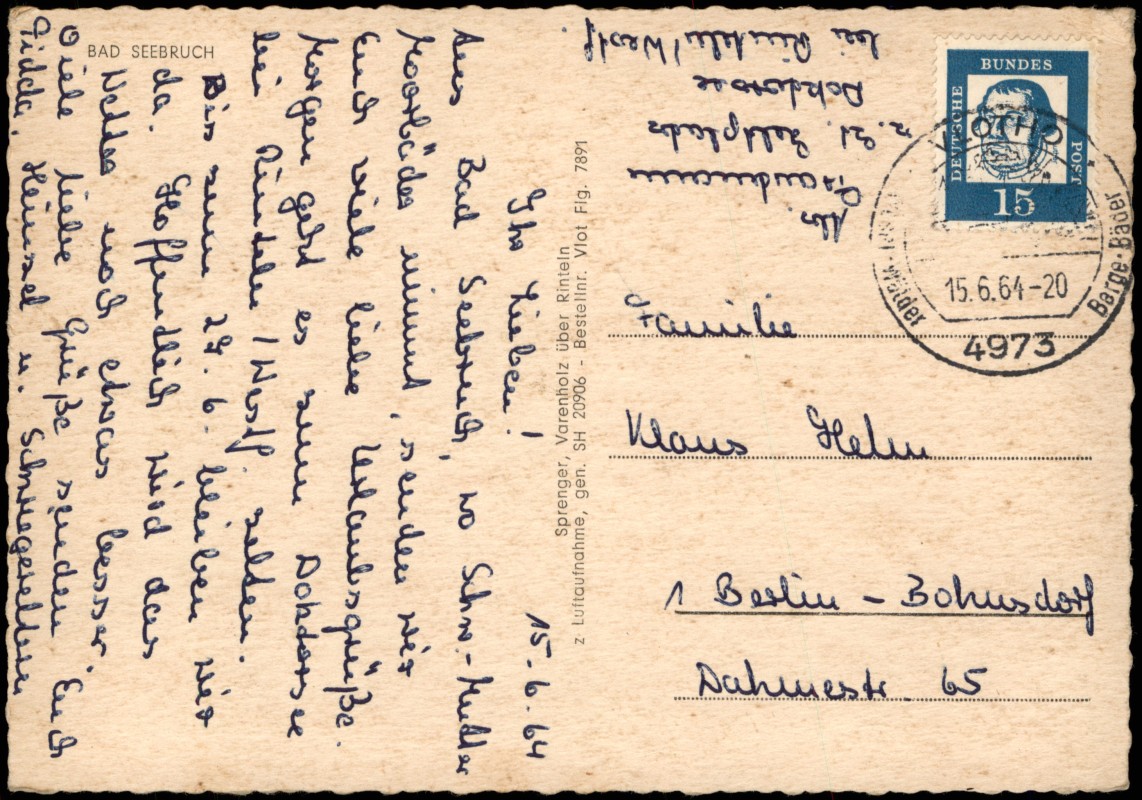 BAD SEEBRUCH
15.6.64
Ihr Lieben!
Aus Bad Seebruch, wo Schw.-Mutter
Moorbäder nimmt, senden wir
Euch viele liebe Urlaubsgrüße.
Morgen geht es zum Doktorsee
bei Rinteln/Westf zelten.
Bis zum 29.6. bleiben wir
da. Hoffentlich wird das
Wetter noch etwas besser.
Viele liebe Grüße senden Euch
Heinzel u. Schwiegereltern
Sprenger, Varenholz über Rinteln
z Luftaufnahme, gen. SH 20906 - Bestellnr. Vlot Flg. 7891
Abs.
z. Zt. Zeltplatz
Doktorsee
bei Rinteln/Westf.
DEUTSCHE
BUNDES
POST
15
VLOTHO
15.6.64-20
Wälder Berge Bäder
4973
Familie
Klaus Helm
1 Berlin - Bohnsdorf
Dahmestr. 65